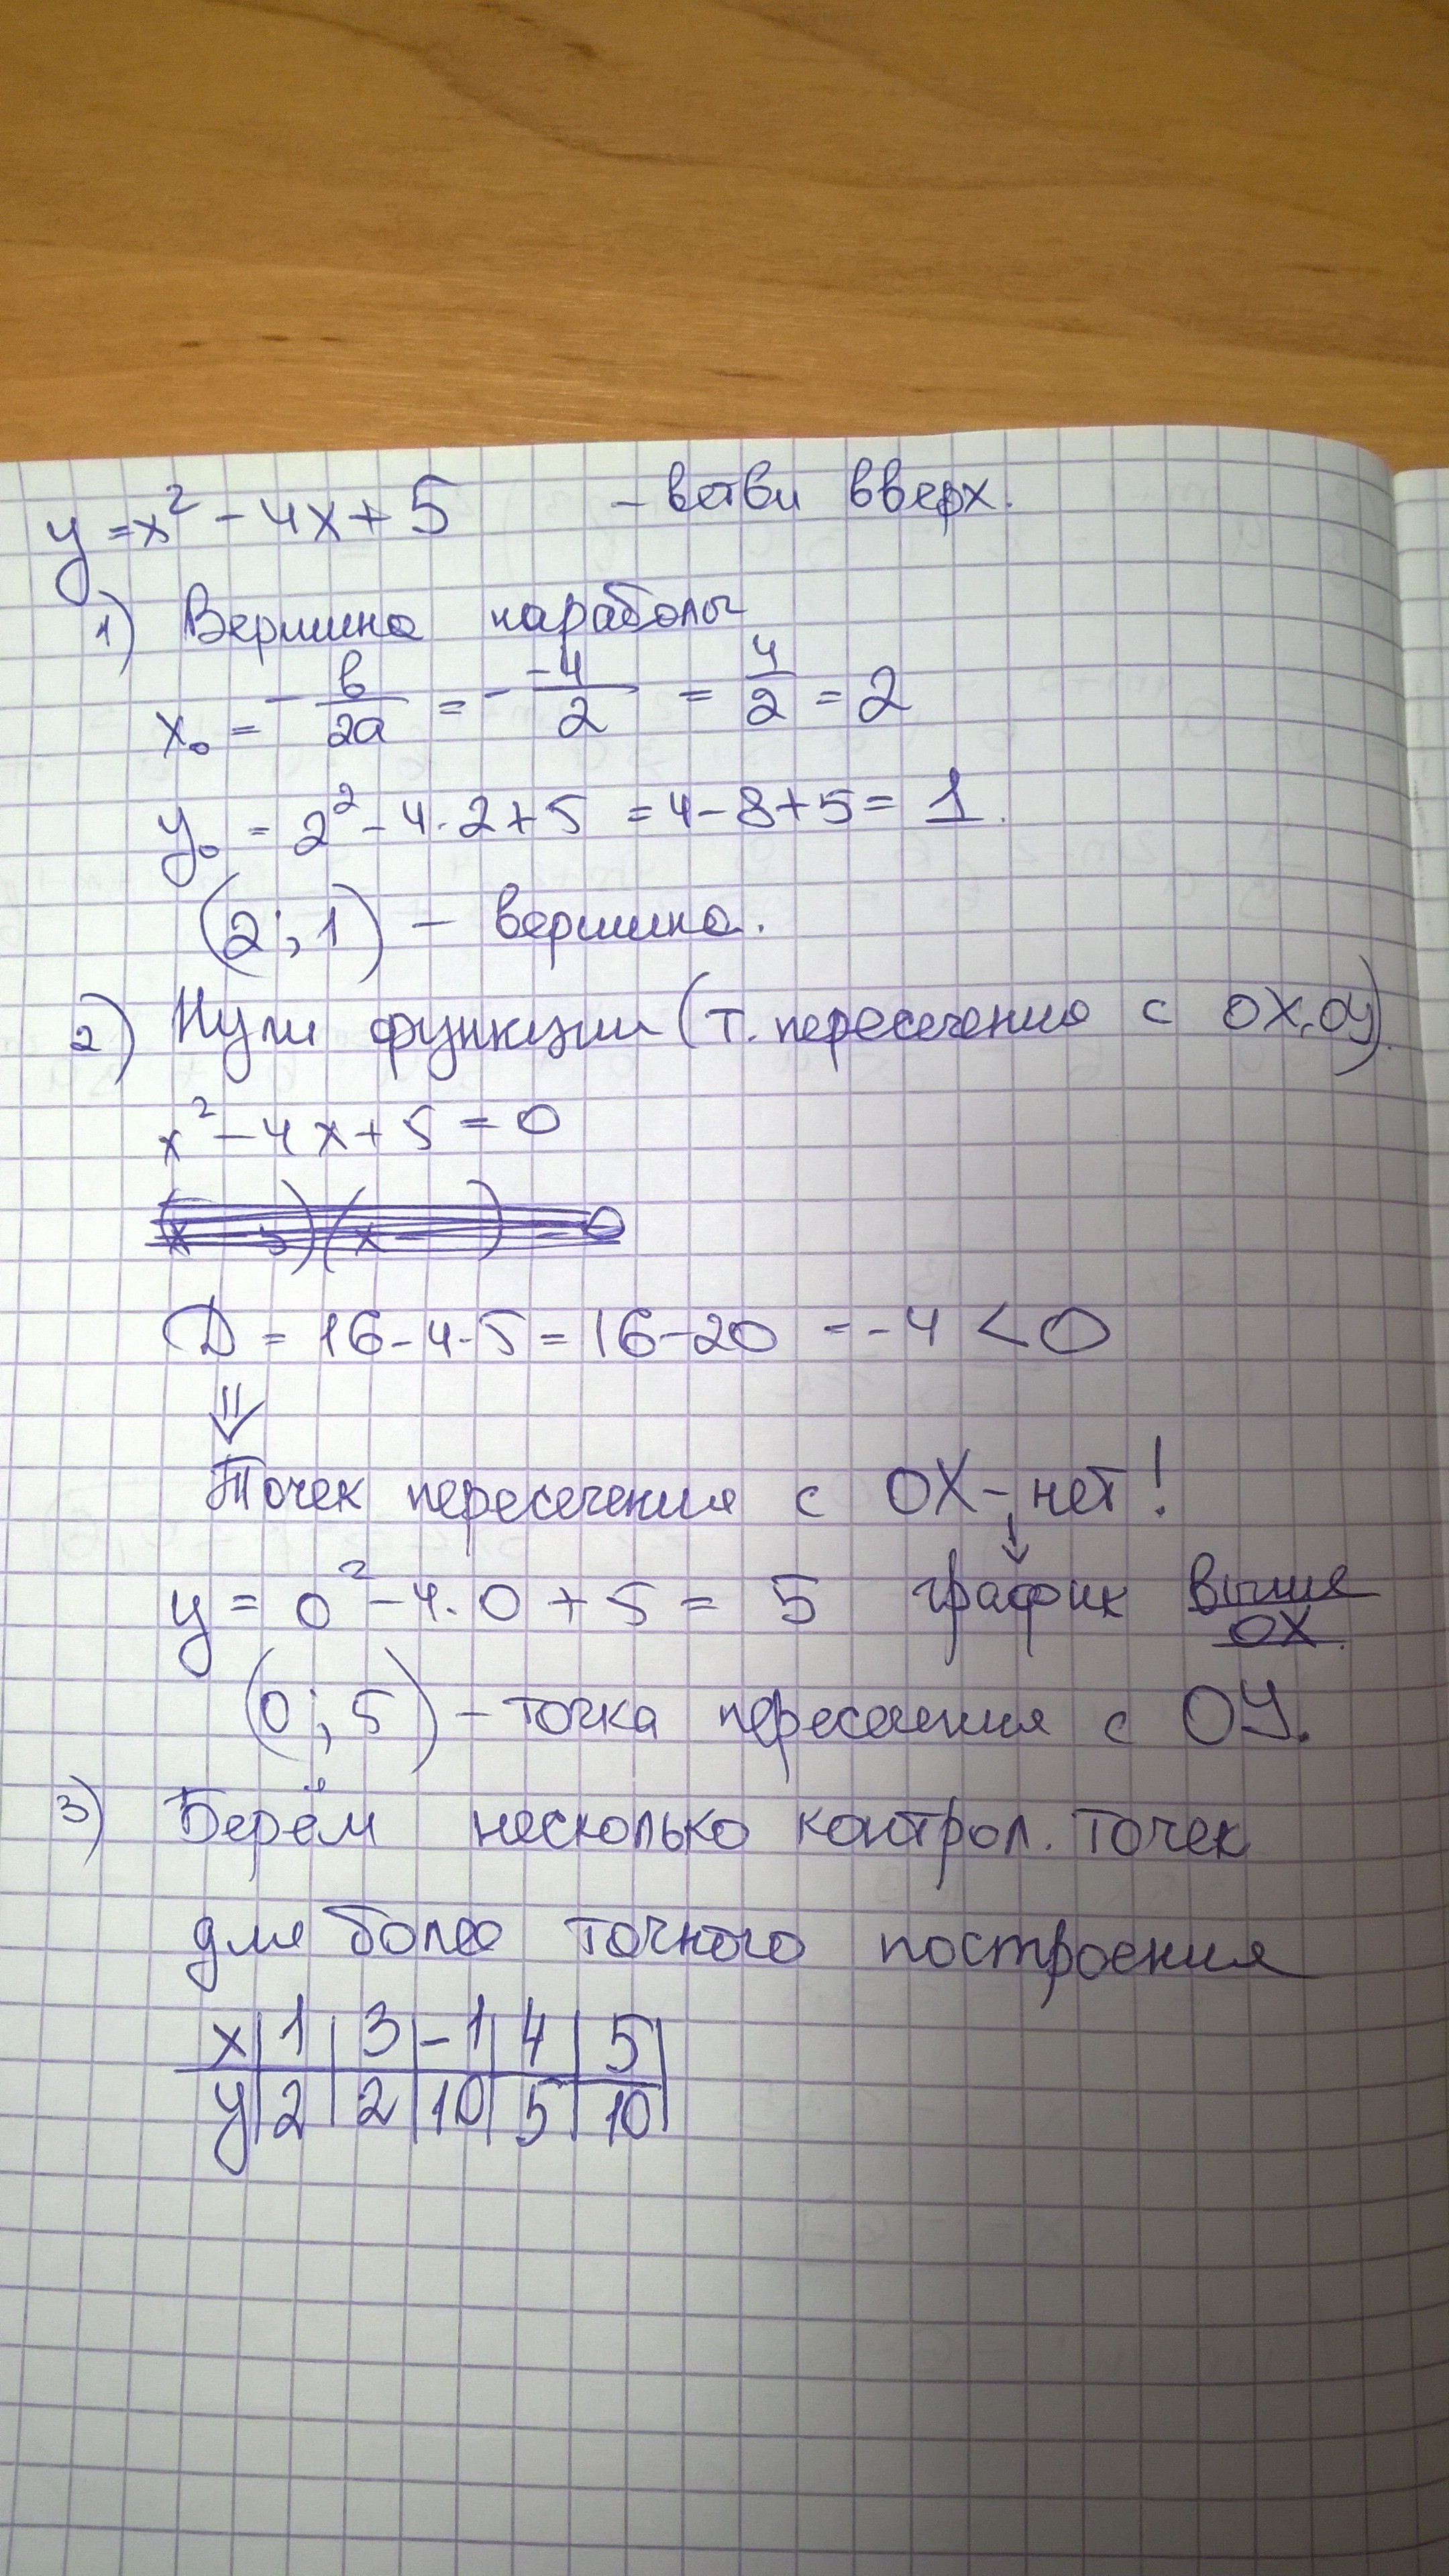 y = x² - 4x + 5 - ветви вверх.
1) Вершина параболы
x₀ = - в/2a = - -4/2 = 4/2 = 2
y₀ = 2² - 4·2 + 5 = 4 - 8 + 5 = 1.
(2; 1) - вершина.
2) Нули функции (т. пересечения с OX, OY).
x² - 4x + 5 = 0
D = 16 - 4·5 = 16 - 20 = -4 < 0
⇓
Точек пересечения с OX - нет!
↓
y = 0² - 4·0 + 5 = 5 график выше
OX.
(0; 5) - точка пересечения с OY.
3) Берём несколько контрол. точек
для более точного построения
x | 1 | 3 | -1 | 4 | 5 |
y | 2 | 2 | 10 | 5 | 10 |